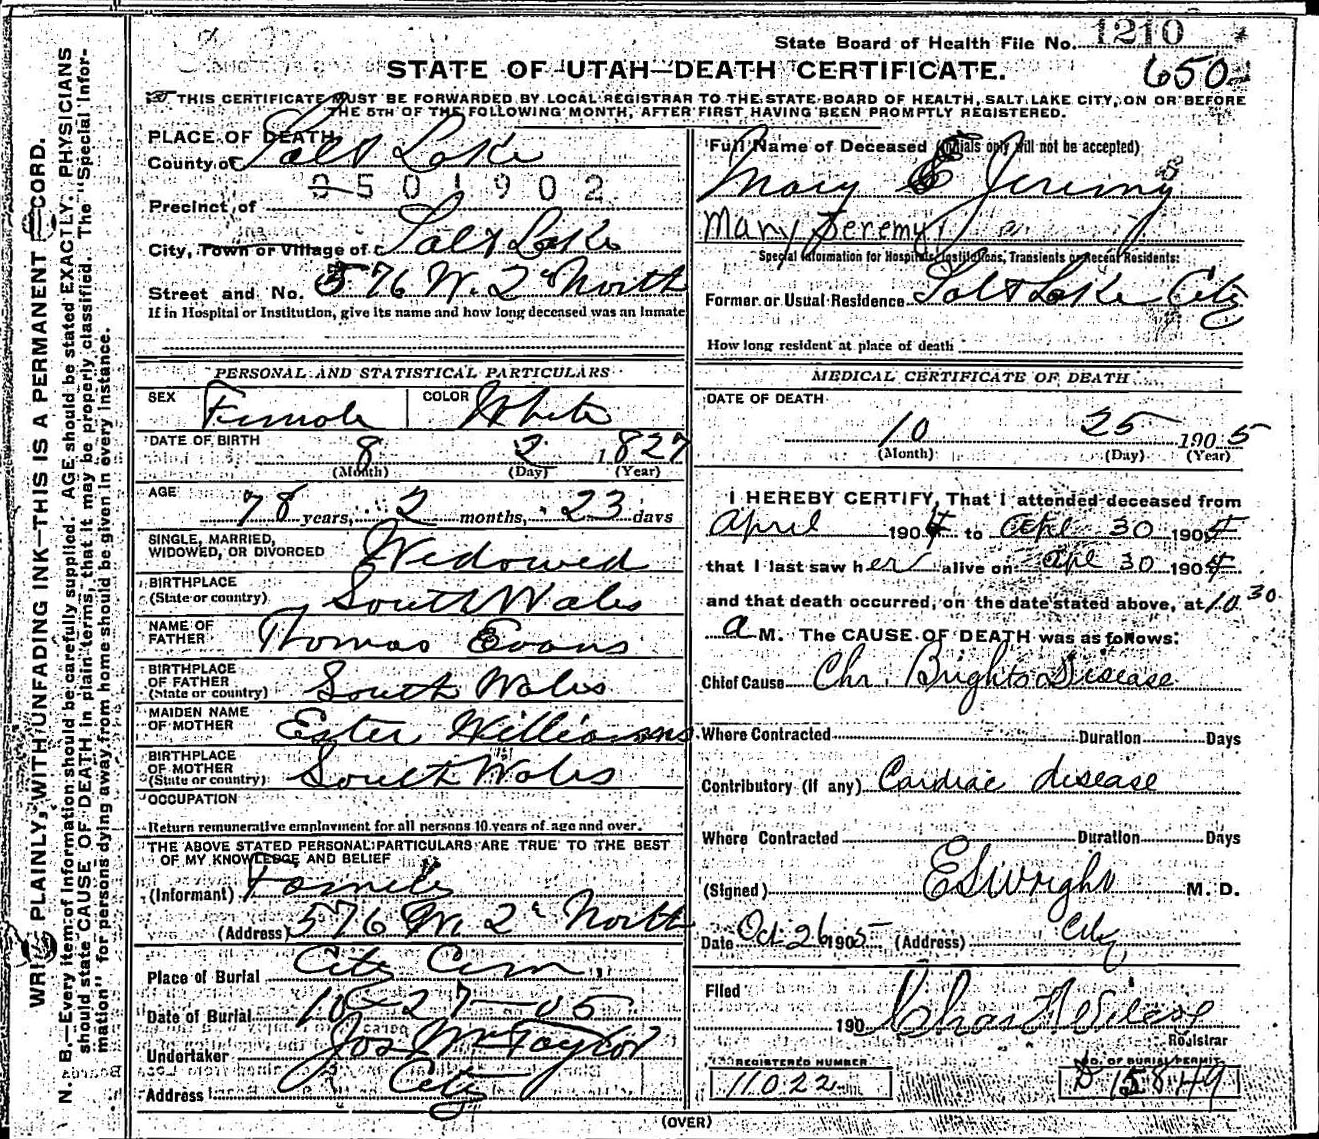 State Board of Health File No. 1210
650
STATE OF UTAH—DEATH CERTIFICATE.
THIS CERTIFICATE MUST BE FORWARDED BY LOCAL REGISTRAR TO THE STATE BOARD OF HEALTH, SALT LAKE CITY, ON OR BEFORE
THE 5TH OF THE FOLLOWING MONTH, AFTER FIRST HAVING BEEN PROMPTLY REGISTERED.
WRITE PLAINLY, WITH UNFADING INK—THIS IS A PERMANENT RECORD.
N. B.—Every item of information should be carefully supplied. AGE should be stated EXACTLY. PHYSICIANS
should state CAUSE OF DEATH in plain terms, that it may be properly classified. The "Special Infor-
mation" for persons dying away from home should be given in every instance.
PLACE OF DEATH
County of Salt Lake
0501902
Precinct of
City, Town or Village of Salt Lake
Street and No. 576 W. 2d North
If in Hospital or Institution, give its name and how long deceased was an inmate
PERSONAL AND STATISTICAL PARTICULARS
SEX Female COLOR White
DATE OF BIRTH
8 2 1827
(Month) (Day) (Year)
AGE
78 years, 2 months, 23 days
SINGLE, MARRIED,
WIDOWED, OR DIVORCED Widowed
BIRTHPLACE
(State or country) South Wales
NAME OF
FATHER Thomas Evans
BIRTHPLACE
OF FATHER
(State or country) South Wales
MAIDEN NAME
OF MOTHER Ester Williams
BIRTHPLACE
OF MOTHER
(State or country) South Wales
OCCUPATION
Return remunerative employment for all persons 10 years of age and over.
THE ABOVE STATED PERSONAL PARTICULARS ARE TRUE TO THE BEST
OF MY KNOWLEDGE AND BELIEF
(Informant) Family
(Address) 576 W. 2d North
Place of Burial City Cem.
Date of Burial 10-27-05
Undertaker Jos Wm Taylor
Address City
Full Name of Deceased (Initials only will not be accepted)
Mary E Jeremy
Mary Jeremy
Special Information for Hospitals, Institutions, Transients or Recent Residents:
Former or Usual Residence Salt Lake City
How long resident at place of death
MEDICAL CERTIFICATE OF DEATH
DATE OF DEATH
10 25 1905
(Month) (Day) (Year)
I HEREBY CERTIFY, That I attended deceased from
April 1904 to Apl 30 1904
that I last saw her alive on Apl 30 1904
and that death occurred, on the date stated above, at 10 30
a M. The CAUSE OF DEATH was as follows:
Chief Cause Chr. Brights Disease
Where Contracted Duration Days
Contributory (if any) Cardiac disease
Where Contracted Duration Days
(Signed) E S Wright M. D.
Date Oct 26 1905 (Address) City
Filed
190
Registrar
REGISTERED NUMBER
11022
NO. OF BURIAL PERMIT
D 15849
(OVER)